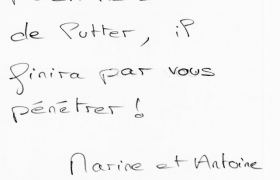 de Putter, il
finira par vous
pénétrer !
Marine et Antoine